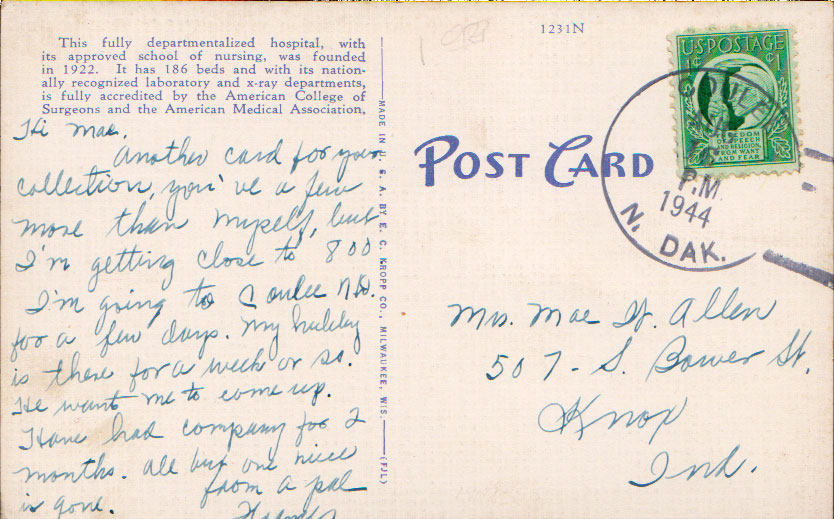 This fully departmentalized hospital, with
its approved school of nursing, was founded
in 1922. It has 186 beds and with its nation-
ally recognized laboratory and x-ray departments,
is fully accredited by the American College of
Surgeons and the American Medical Association.
Hi Mae.
Another card for your
collection, you've a few
more than myself, but
I'm getting close to 800
I'm going to Coulee N.D.
for a few days. My hubby
is there for a week or so.
He want me to come up.
Have had company for 2
months. all but one niece
is gone.
from a pal
MADE IN U. S. A. BY E. C. KROPP CO., MILWAUKEE, WIS.
(FJL)
1231N
POST CARD
U.S. POSTAGE
1¢ ¢1
FREEDOM
OF SPEECH
AND RELIGION,
FROM WANT
AND FEAR
COULEE
P.M
1944
N. DAK.
Mrs. Mae W. Allen
507 - S. Bower St.
Knox
Ind.